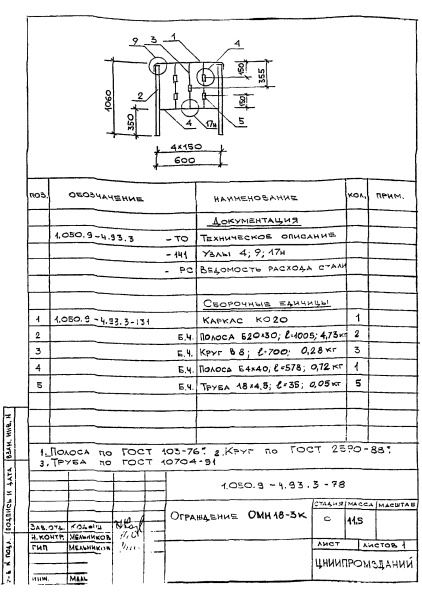 9 3 1 4
1060
350
2
150
355
150
4 17н 5
4×150
600
ПОЗ. ОБОЗНАЧЕНИЕ НАИМЕНОВАНИЕ КОЛ. ПРИМ.
ДОКУМЕНТАЦИЯ
1.050.9-4.93.3 - ТО ТЕХНИЧЕСКОЕ ОПИСАНИЕ
- 141 УЗЛЫ 4; 9; 17н
- РС ВЕДОМОСТЬ РАСХОДА СТАЛИ
СБОРОЧНЫЕ ЕДИНИЦЫ
1 1.050.9-4.93.3-131 КАРКАС КО20 1
2 Б.Ч. ПОЛОСА Б20×30; ℓ=1005; 4,73кг 2
3 Б.Ч. КРУГ В8; ℓ=700; 0,28кг 3
4 Б.Ч. ПОЛОСА Б4×40, ℓ=578; 0,72кг 1
5 Б.Ч. ТРУБА 18×4,5; ℓ=35; 0,05кг 5
1. ПОЛОСА ПО ГОСТ 103-76* 2. КРУГ ПО ГОСТ 2590-88*
3. ТРУБА ПО ГОСТ 10704-91
1.050.9-4.93.3-78
ОГРАЖДЕНИЕ ОМН18-3К
СТАДИЯ МАССА МАСШТАБ
С 11,5
ЛИСТ ЛИСТОВ 1
ЦНИИПРОМЗДАНИЙ
ЗАВ. ОТД.
Н.КОНТР. МЕЛЬНИКОВ
ГИП МЕЛЬНИКОВ
ИНЖ.
ВЗАМ. ИНВ. N
ПОДПИСЬ И ДАТА